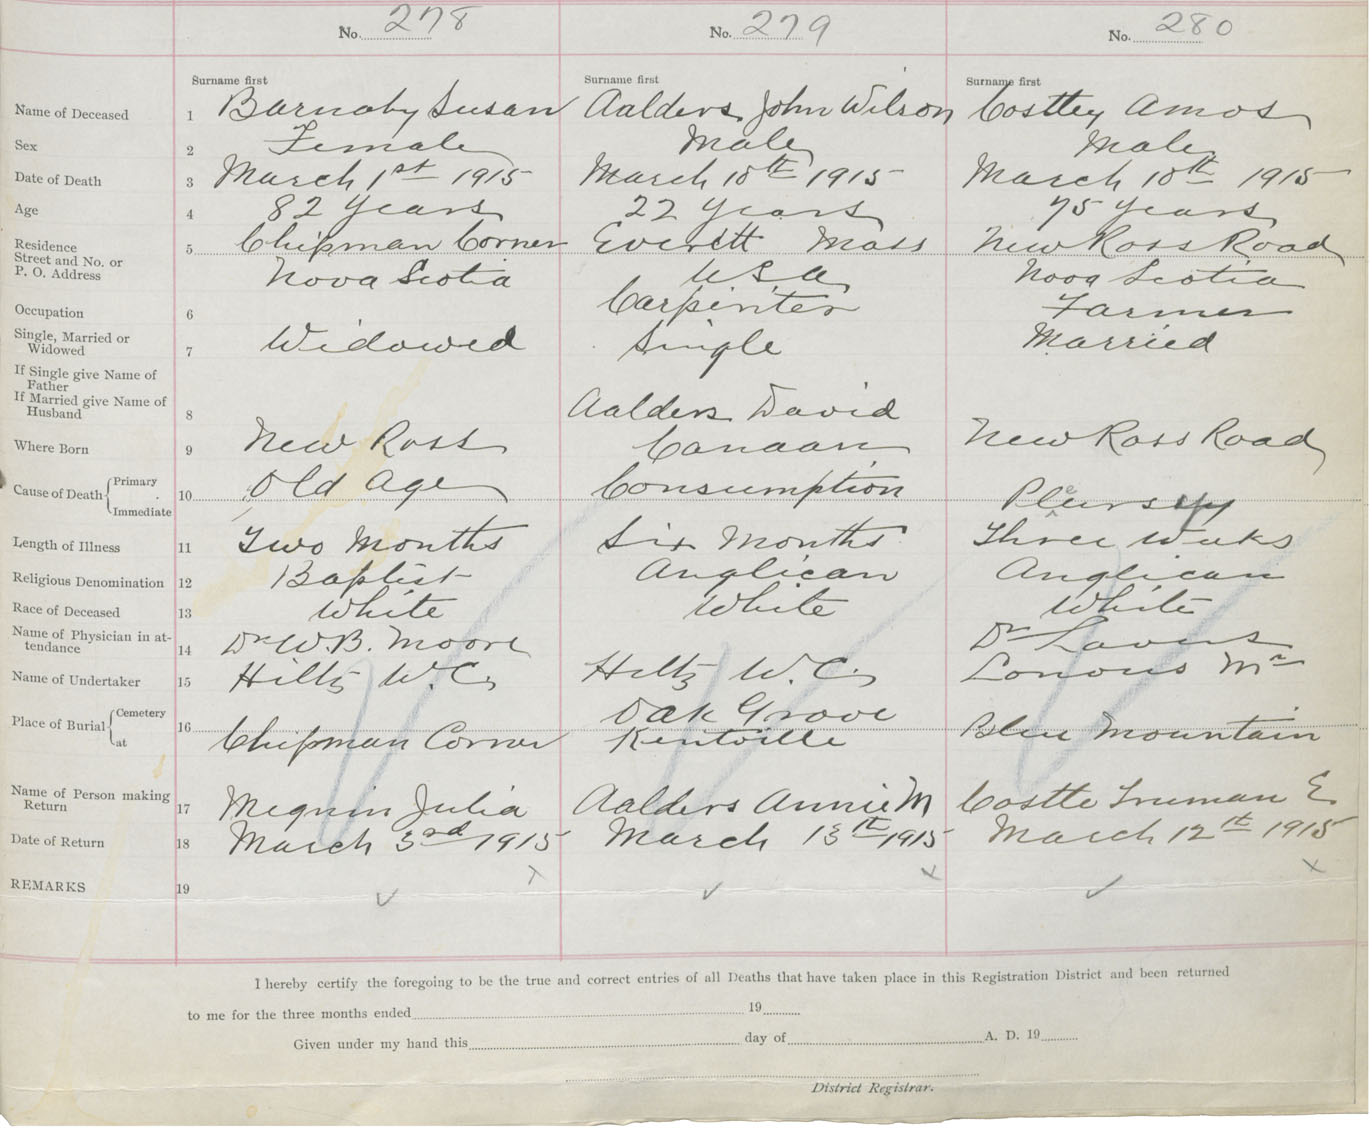 No. 278 No. 279 No. 280
Surname first Surname first Surname first
Name of Deceased 1 Barnaby Susan Aalders John Wilson Costley Amos
Sex 2 Female Male Male
Date of Death 3 March 1st 1915 March 10th 1915 March 10th 1915
Age 4 82 Years 22 Years 75 Years
Residence 5 Chipman Corner Everett Mass New Ross Road
Street and No. or
P. O. Address Nova Scotia U S A Nova Scotia
Occupation 6 Carpinter Farmer
Single, Married or
Widowed 7 Widowed Single Married
If Single give Name of
Father
If Married give Name of
Husband 8 Aalders David
Where Born 9 New Ross Canaan New Ross Road
Cause of Death Primary 10 Old Age Consumption Pleursey
Immediate
Length of Illness 11 Two Months Six Months Three weeks
Religious Denomination 12 Baptist Anglican Anglican
Race of Deceased 13 White White White
Name of Physician in at-
tendance 14 Dr W. B. Moore Dr
Name of Undertaker 15 Hiltz W. C. Hiltz W. C. Mr
Place of Burial Cemetery 16 Oak Grove
at Chipman Corner Kentville Blue Mountain
Name of Person making
Return 17 Julia Aalders Annie M Costle Truman E.
Date of Return 18 March 3rd 1915 March 13th 1915 March 12th 1915
REMARKS 19
I hereby certify the foregoing to be the true and correct entries of all Deaths that have taken place in this Registration District and been returned
to me for the three months ended 19
Given under my hand this day of A. D. 19
District Registrar.